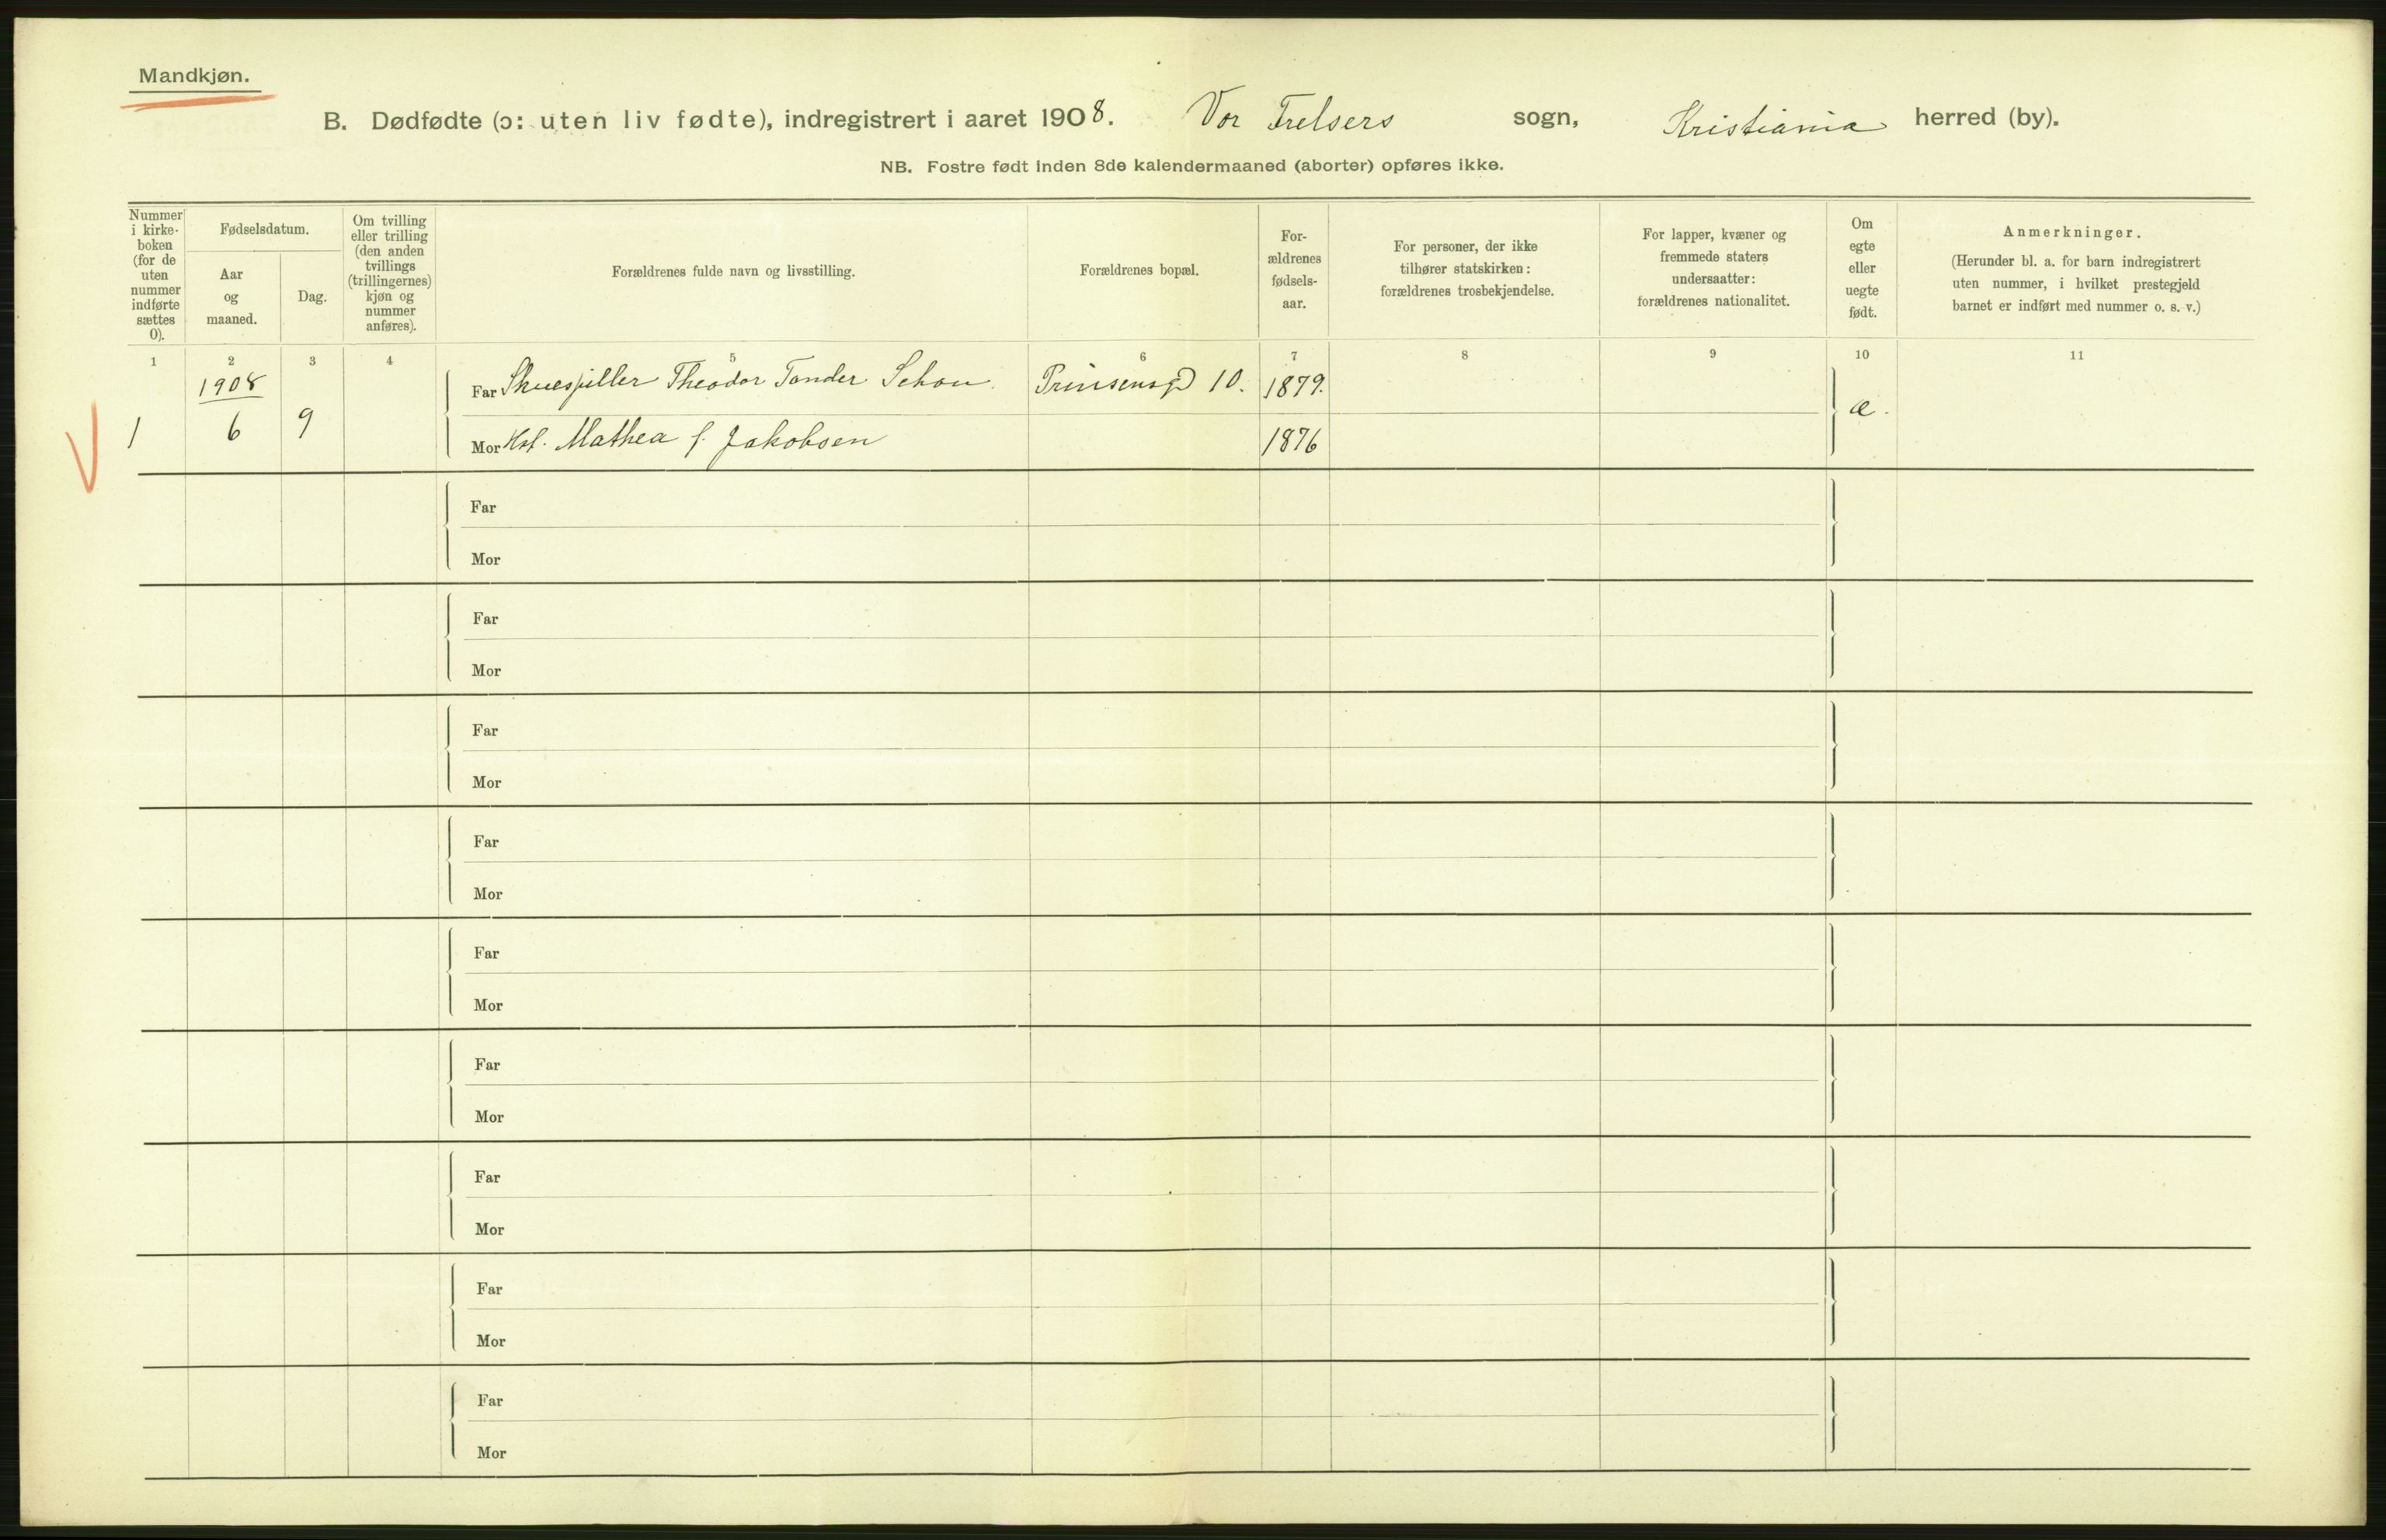 Mandkjøn.
B. Dødfødte (ɔ: uten liv fødte), indregistrert i aaret 1908. Vor Frelsers sogn, Kristiania herred (by).
NB. Fostre født inden 8de kalendermaaned (aborter) opføres ikke.
Nummer i kirke-boken (for de uten nummer indførte sættes 0).
Fødselsdatum.
Aar og maaned.
Dag.
Om tvilling eller trilling (den anden tvillings (trillingernes) kjøn og nummer anføres).
Forældrenes fulde navn og livsstilling.
Forældrenes bopæl.
For-ældrenes fødsels-aar.
For personer, der ikke tilhører statskirken: forældrenes trosbekjendelse.
For lapper, kvæner og fremmede staters undersaatter: forældrenes nationalitet.
Om egte eller uegte født.
Anmerkninger.
(Herunder bl. a. for barn indregistrert uten nummer, i hvilket prestegjeld barnet er indført med nummer o. s. v.)
1 2 3 4 5 6 7 8 9 10 11
1908
Far Skuespiller Theodor Tonder Schou. Prinsensgd 10. 1879.
1 6 9 æ.
Mor Hst. Mathea f. Jakobsen 1876
Far
Mor
Far
Mor
Far
Mor
Far
Mor
Far
Mor
Far
Mor
Far
Mor
Far
Mor
Far
Mor